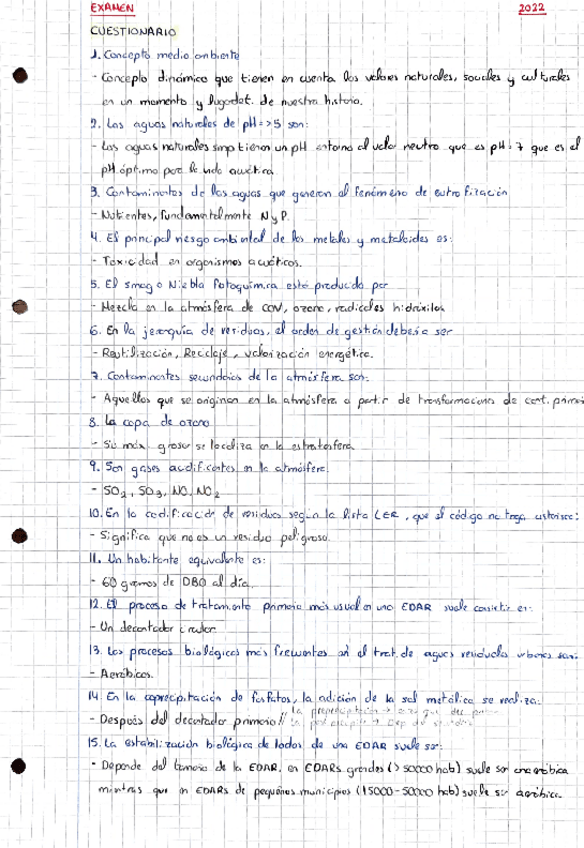 EXAMEN 2022
CUESTIONARIO
1. Concepto medio ambiente
- Concepto dinámico que tienen en cuenta los valores naturales, sociales y culturales
en un momento y lugar det. de nuestra historia.
2. Las aguas naturales de pH => 5 son:
- Las aguas naturales tienen un pH entorno al valor neutro que es pH = 7 que es el
pH óptimo para la vida acuática.
3. Contaminantes de las aguas que generan el fenómeno de eutrofización
- Nutrientes, fundamentalmente N y P.
4. El principal riesgo ambiental de los metales y metaloides es:
- Toxicidad en organismos acuáticos.
5. El smog o Niebla Fotoquímica está producida por
- Mezcla en la atmósfera de COV, ozono, radicales hidroxilos
6. En la jerarquía de residuos, el orden de gestión debería ser
- Reutilización, Reciclaje, valorización energética.
7. Contaminantes secundarios de la atmósfera son:
- Aquellos que se originan en la atmósfera a partir de transformaciones de cont. primari
8. La capa de ozono
- Su máx. grosor se localiza en la estratosfera.
9. Son gases acidificantes en la atmósfera:
- SO2, SO3, NO, NO2
10. En la codificación de residuos según la lista LER, que el código no tenga asterisco:
- Significa que no es un residuo peligroso.
11. Un habitante equivalente es:
- 60 gramos de DBO al día.
12. El proceso de tratamiento primario más usual en una EDAR suele consistir en:
- Un decantador circular
13. Los procesos biológicos más frecuentes en el trat. de aguas residuales urbanas son:
- Aeróbicos.
14. En la coprecipitación de fosfatos, la adición de la sal metálica se realiza:
- Después del decantador primario //
15. La estabilización biológica de lodos de una EDAR suele ser:
- Depende del tamaño de la EDAR, en EDARs grandes (> 50000 hab) suele ser anaeróbica
mientras que en EDARs de pequeños municipios (15000-50000 hab) suele ser aeróbica.